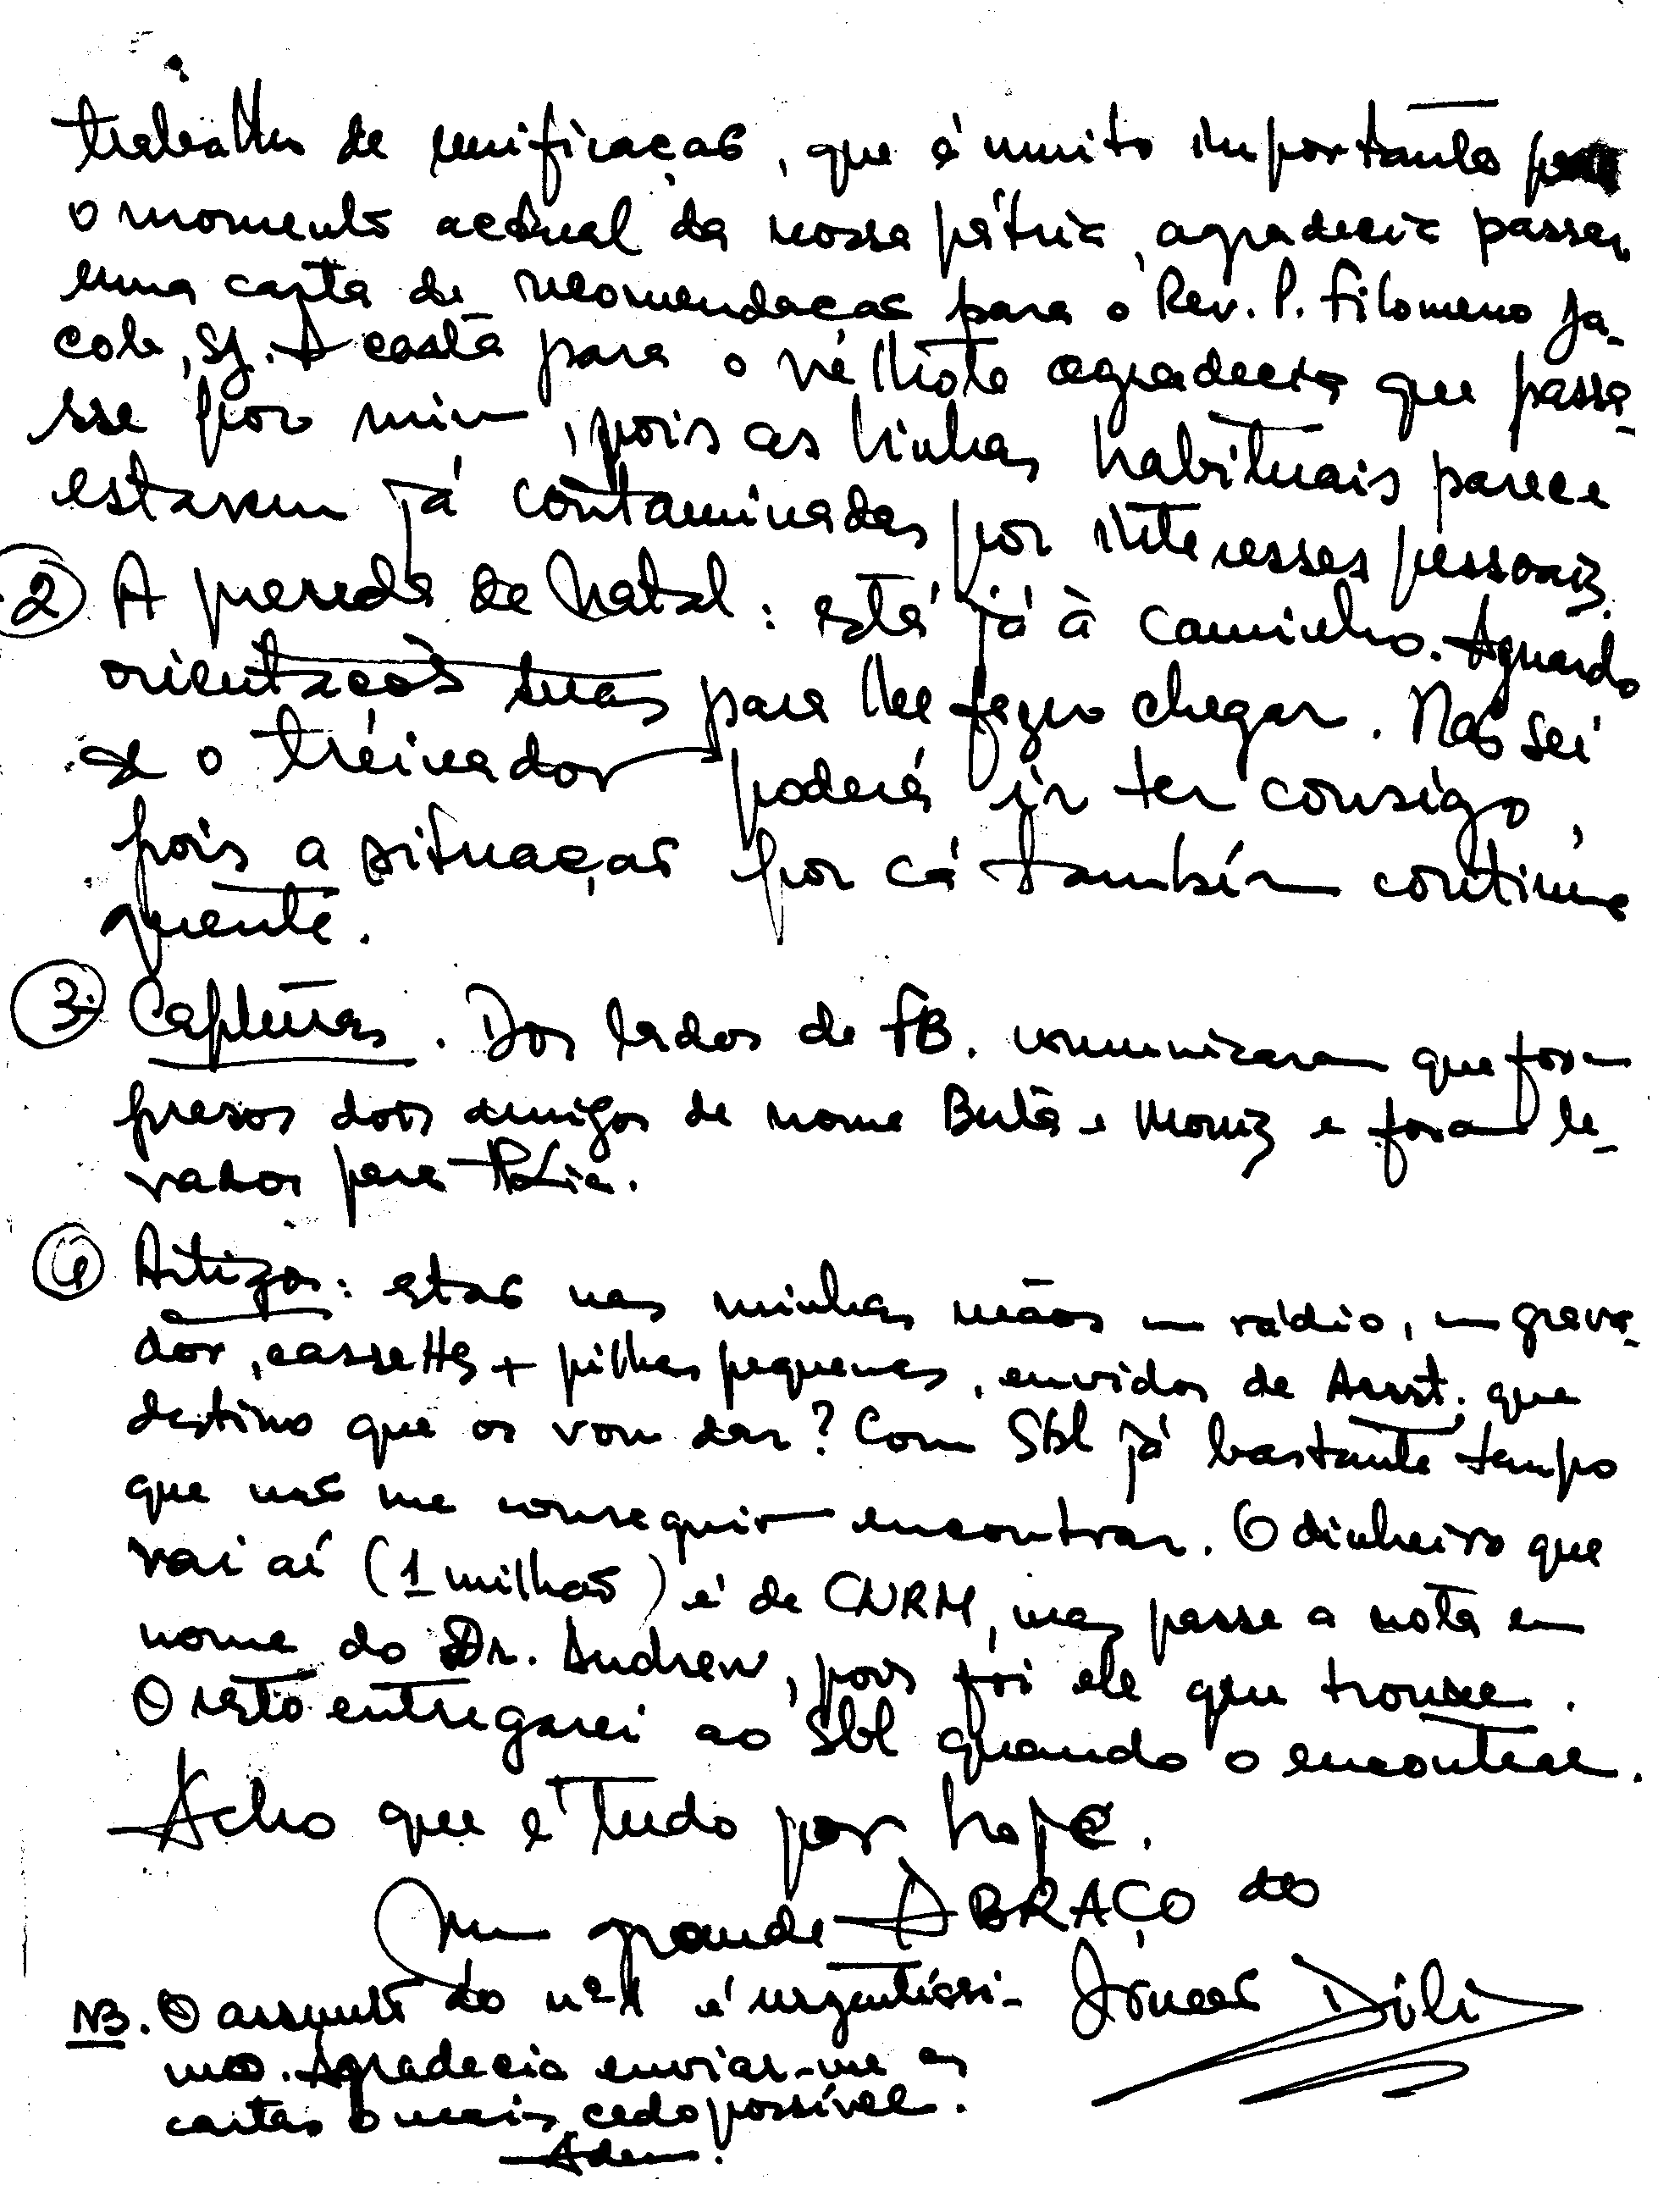 trabalho de unificação, que é muito importante para
o momento actual da nossa pátria, agradecia passar
uma carta de recomendação para o Rev. P. Filomeno Ja-
cob, SJ. A carta para o velhote agradecia que passa-
sse por mim, pois as linhas habituais parece
estarem já contaminadas por interesses pessoais.
2 A prenda de Natal: está já à caminho. Aguardo
orientações suas para lhe fazer chegar. Não sei
se o treinador poderá ir ter consigo,
pois a situação por cá também continua
quente.
3. Capturas. Dos lados de FB. comunicaram que foram
presos dois amigos de nome Buta e Moniz e foram le-
vados para
4 Artigos: estão nas minhas mãos um rádio, um grava-
dor, cassettes + pilhas pequenas, envidos de Aust. que
destino que os vou dar? Com Sbl já bastante tempo
que não me conseguir encontrar. O dinheiro que
vai aí (1 milhão) é de CNRM, mas passe a nota em
nome do Dr. Andrew, pois foi ele que trouxe.
O resto entregarei ao Sbl quando o encontrar.
Acho que é tudo por hoje.
Um grande ABRAÇO do
NB. O assunto do nº 1 é urgentíssi-
mo. Agradecia enviar-me as
cartas o mais cedo possível.
Adem.
Díli